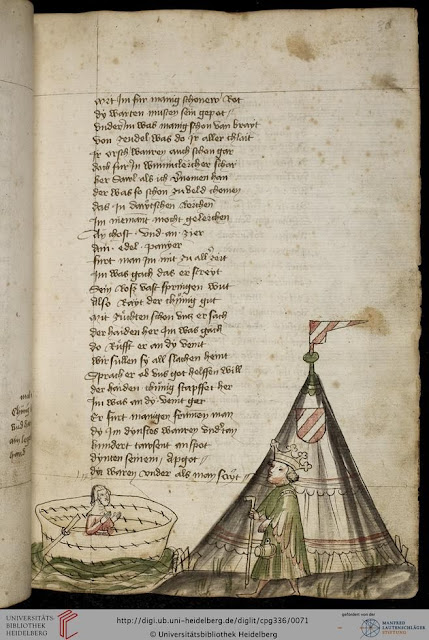 für manig schonew Rot
dy warten musten sein gepot
vnder Im was manig schon van brayt
von zendel was do Ir aller chlait
Ir orsch waurn auch schon gar
doch fur In wunnicleicher schar
der Sawl als ich v̈nomen han
der was so schon zu veld chomen
das In dawtschen Reichen
Im niemant mocht geleichen
An chost vnd an zier
ain edel panyer
furt man Im mit zu aller zeit
Im was gach das er streyt
Sein Ross vast springen wut
Also Rayt der chünig gut
mit züchten schon vnz er sach
der haiden her Im was gach
do Rufft er an dy veint
wir süllen sy all slachen heint
Sprach er ob vns got helffen will
der haiden chünig stapffet her
Im was an dy veint ger
Er furt manigen künnen man
dy Im dynstes waren vndertan
hundert tawsent an spot
dynten seinem Apgot
dye waren vnder als man seyt
UNIVERSITÄTS-
BIBLIOTHEK
HEIDELBERG
http://digi.ub.uni-heidelberg.de/diglit/cpg336/0071
© Universitätsbibliothek Heidelberg
gefördert von der
MANFRED
LAUTENSCHLÄGER
STIFTUNG